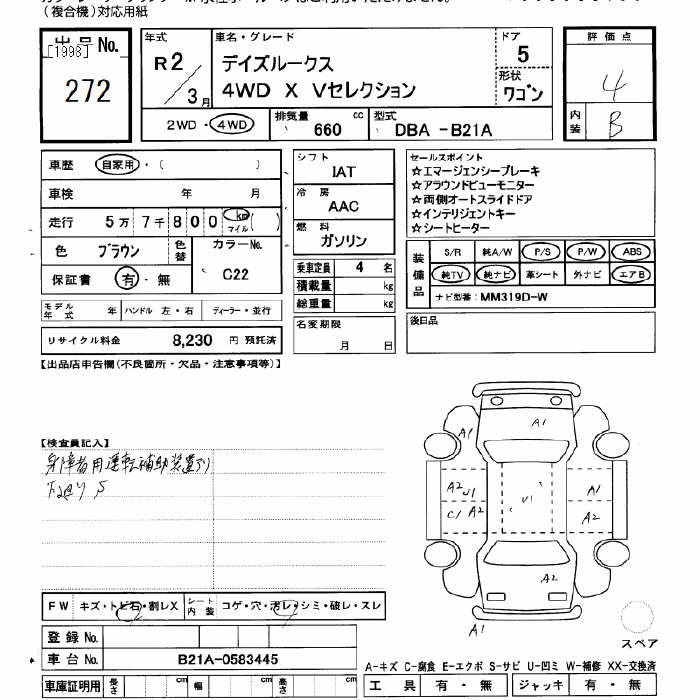 (複合機)対応用紙
出品No.
[1998]
272
年式
R2/3月
車名・グレード
デイズルークス
4WD X Vセレクション
ドア
5
形状
ワゴン
評価点
4
内装
B
2WD・4WD
排気量
660 cc
型式
DBA -B21A
車歴 自家用・( )
車検 年 月
走行 5万7千800 km マイル( )
色 ブラウン
色替
カラーNo.
C22
保証書 有・無
シフト
IAT
冷房
AAC
燃料
ガソリン
乗車定員 4 名
積載量 kg
総重量 kg
セールスポイント
☆エマージェンシーブレーキ
☆アラウンドビューモニター
☆両側オートスライドドア
☆インテリジェントキー
☆シートヒーター
装備品
S/R 純A/W P/S P/W ABS
純TV 純ナビ 革シート 外ナビ エアB
ナビ型番: MM319D-W
モデル年式 年 ハンドル 左・右 ディーラー・並行
リサイクル料金 8,230 円 預託済
名変期限
月 日
後日品
【出品店申告欄(不良箇所・欠品・注意事項等)】
【検査員記入】
身障者用運転補助装置アリ
下廻り S
A1
A1
A2 U1
C1 A2
U1
A1
A2
A2
A1
スペア
FW キズ・トビ石・割レX
シート内装 コゲ・穴・汚レ・シミ・破レ・スレ
登録No.
車台No. B21A-0583445
A-キズ C-腐食 E-エクボ S-サビ U-凹ミ W-補修 XX-交換済
車庫証明用 長さ cm 幅 cm 高さ cm
工具 有・無 ジャッキ 有・無